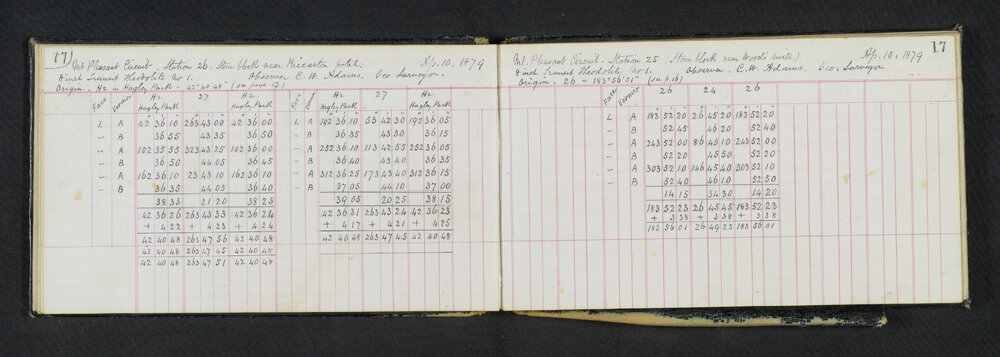 17)
Mt. Pleasant Circuit. Station 26. Stone block near Riccarton Hotel. Ap. 10. 1879
8 inch Transit Theodolite No 1. Observer C. W. Adams. Geo Surveyor.
Origin. Hz in Hagley Park = 42° 40' 48" (see page 13)
Face Vernier Hz Hagley Park 27 Hz Hagley Park Face Vernier Hz Hagley Park 27 Hz Hagley Park
L A 42 36 10 263 43 00 42 36 00 L A 192 36 10 53 42 30 192 36 05
" B 36 35 43 35 36 50 " B 36 35 43 30 36 15
" A 102 35 55 323 43 25 102 36 00 " A 252 36 10 113 42 55 252 36 05
" B 36 50 44 05 36 45 " B 36 40 43 40 36 35
" A 162 36 10 23 43 10 162 36 10 " A 312 36 25 173 43 40 312 36 15
" B 36 35 44 05 36 40 " B 37 05 44 10 37 00
38 35 21 20 38 25 39 05 20 25 38 15
42 36 26 263 43 33 42 36 24 42 36 31 263 43 24 42 36 23
+ 4 22 + 4 23 + 4 24 + 4 17 + 4 21 + 4 25
42 40 48 263 47 56 42 40 48 42 40 48 263 47 45 42 40 48
42 40 48 263 47 45 42 40 48
42 40 48 263 47 51 42 40 48
17
Mt. Pleasant Circuit. Station 25 (Stone block near Wood's Mill.) Ap. 10. 1879
8 inch Transit Theodolite No 1. Observer C. W. Adams. Geo. Surveyor
Origin. 26 = 183° 56' 01" (see p. 16)
Face Vernier 26 24 26
L A 183 52 20 26 45 20 183 52 20
" B 52 45 46 20 52 40
" A 243 52 00 86 45 10 243 52 00
" B 52 20 45 50 52 20
" A 303 52 10 146 45 40 303 52 10
" B 52 40 46 10 52 50
14 15 34 30 14 20
183 52 23 26 45 45 183 52 23
+ 3 38 + 3 38 + 3 38
183 56 01 26 49 23 183 56 01